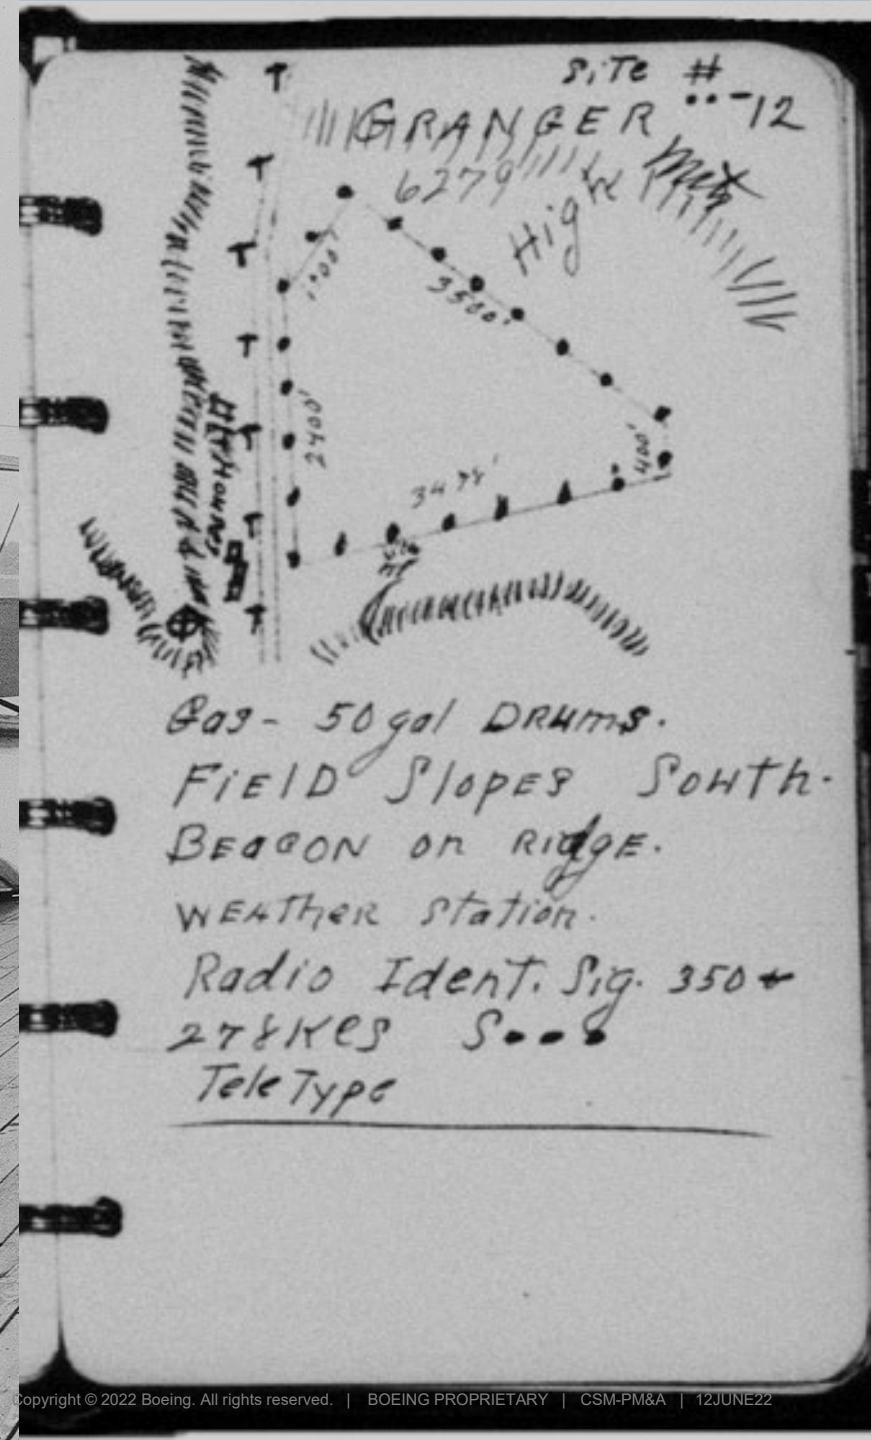 SiTe #
••-12
GRANGER
6279
High
1°00'
3500'
2400'
400'
3478'
Gas - 50 gal DRums.
FiElD SlopEs South.
BEacON on RidgE.
WEAThER Station.
Radio Ident. Sig. 350 +
278 KCS S•••
TeleType
Copyright © 2022 Boeing. All rights reserved. | BOEING PROPRIETARY | CSM-PM&A | 12JUNE22